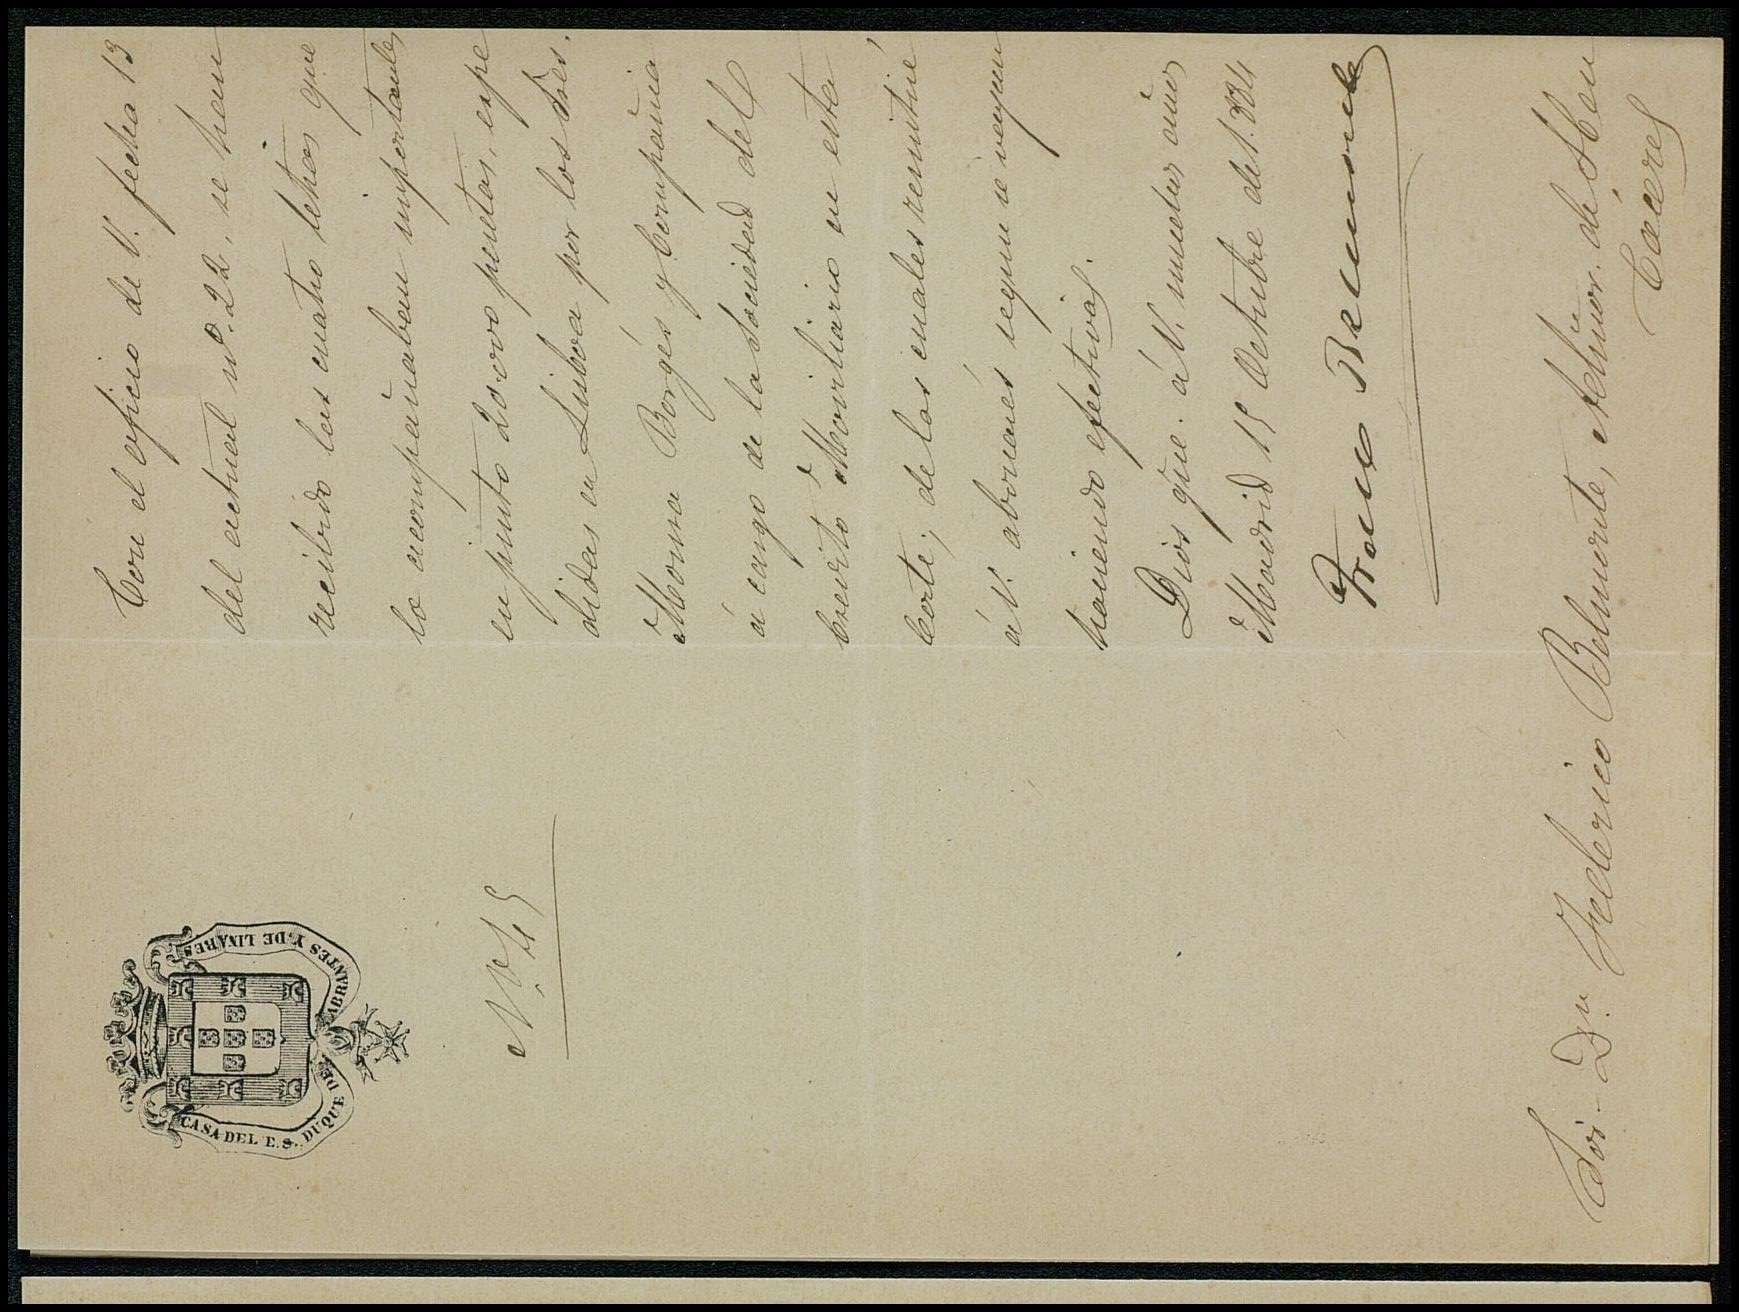 CASA DEL E.S. DUQUE DE ABRANTES Y. DE LINARES
Nº 45
Con el oficio de V. fecha 13
del actual nº. 22, se han
recibido las cuatro letras que
lo acompañaban importantes
en junto 20.000 pesetas, expe
didas en Lisboa por los Sres.
Borgés y Compañia
á cargo de la Sociedad del
Credito Moviliario en esta
Corte; de las cuales remitiré
á V. abonarés segun se vayan
haciendo efectivas.
Dios gue. á V. muchos años
Madrid 15 Octubre de 1.884
Franco Belmonte
Sor. Dn. Federico Belmonte, Admor. de
Cáceres